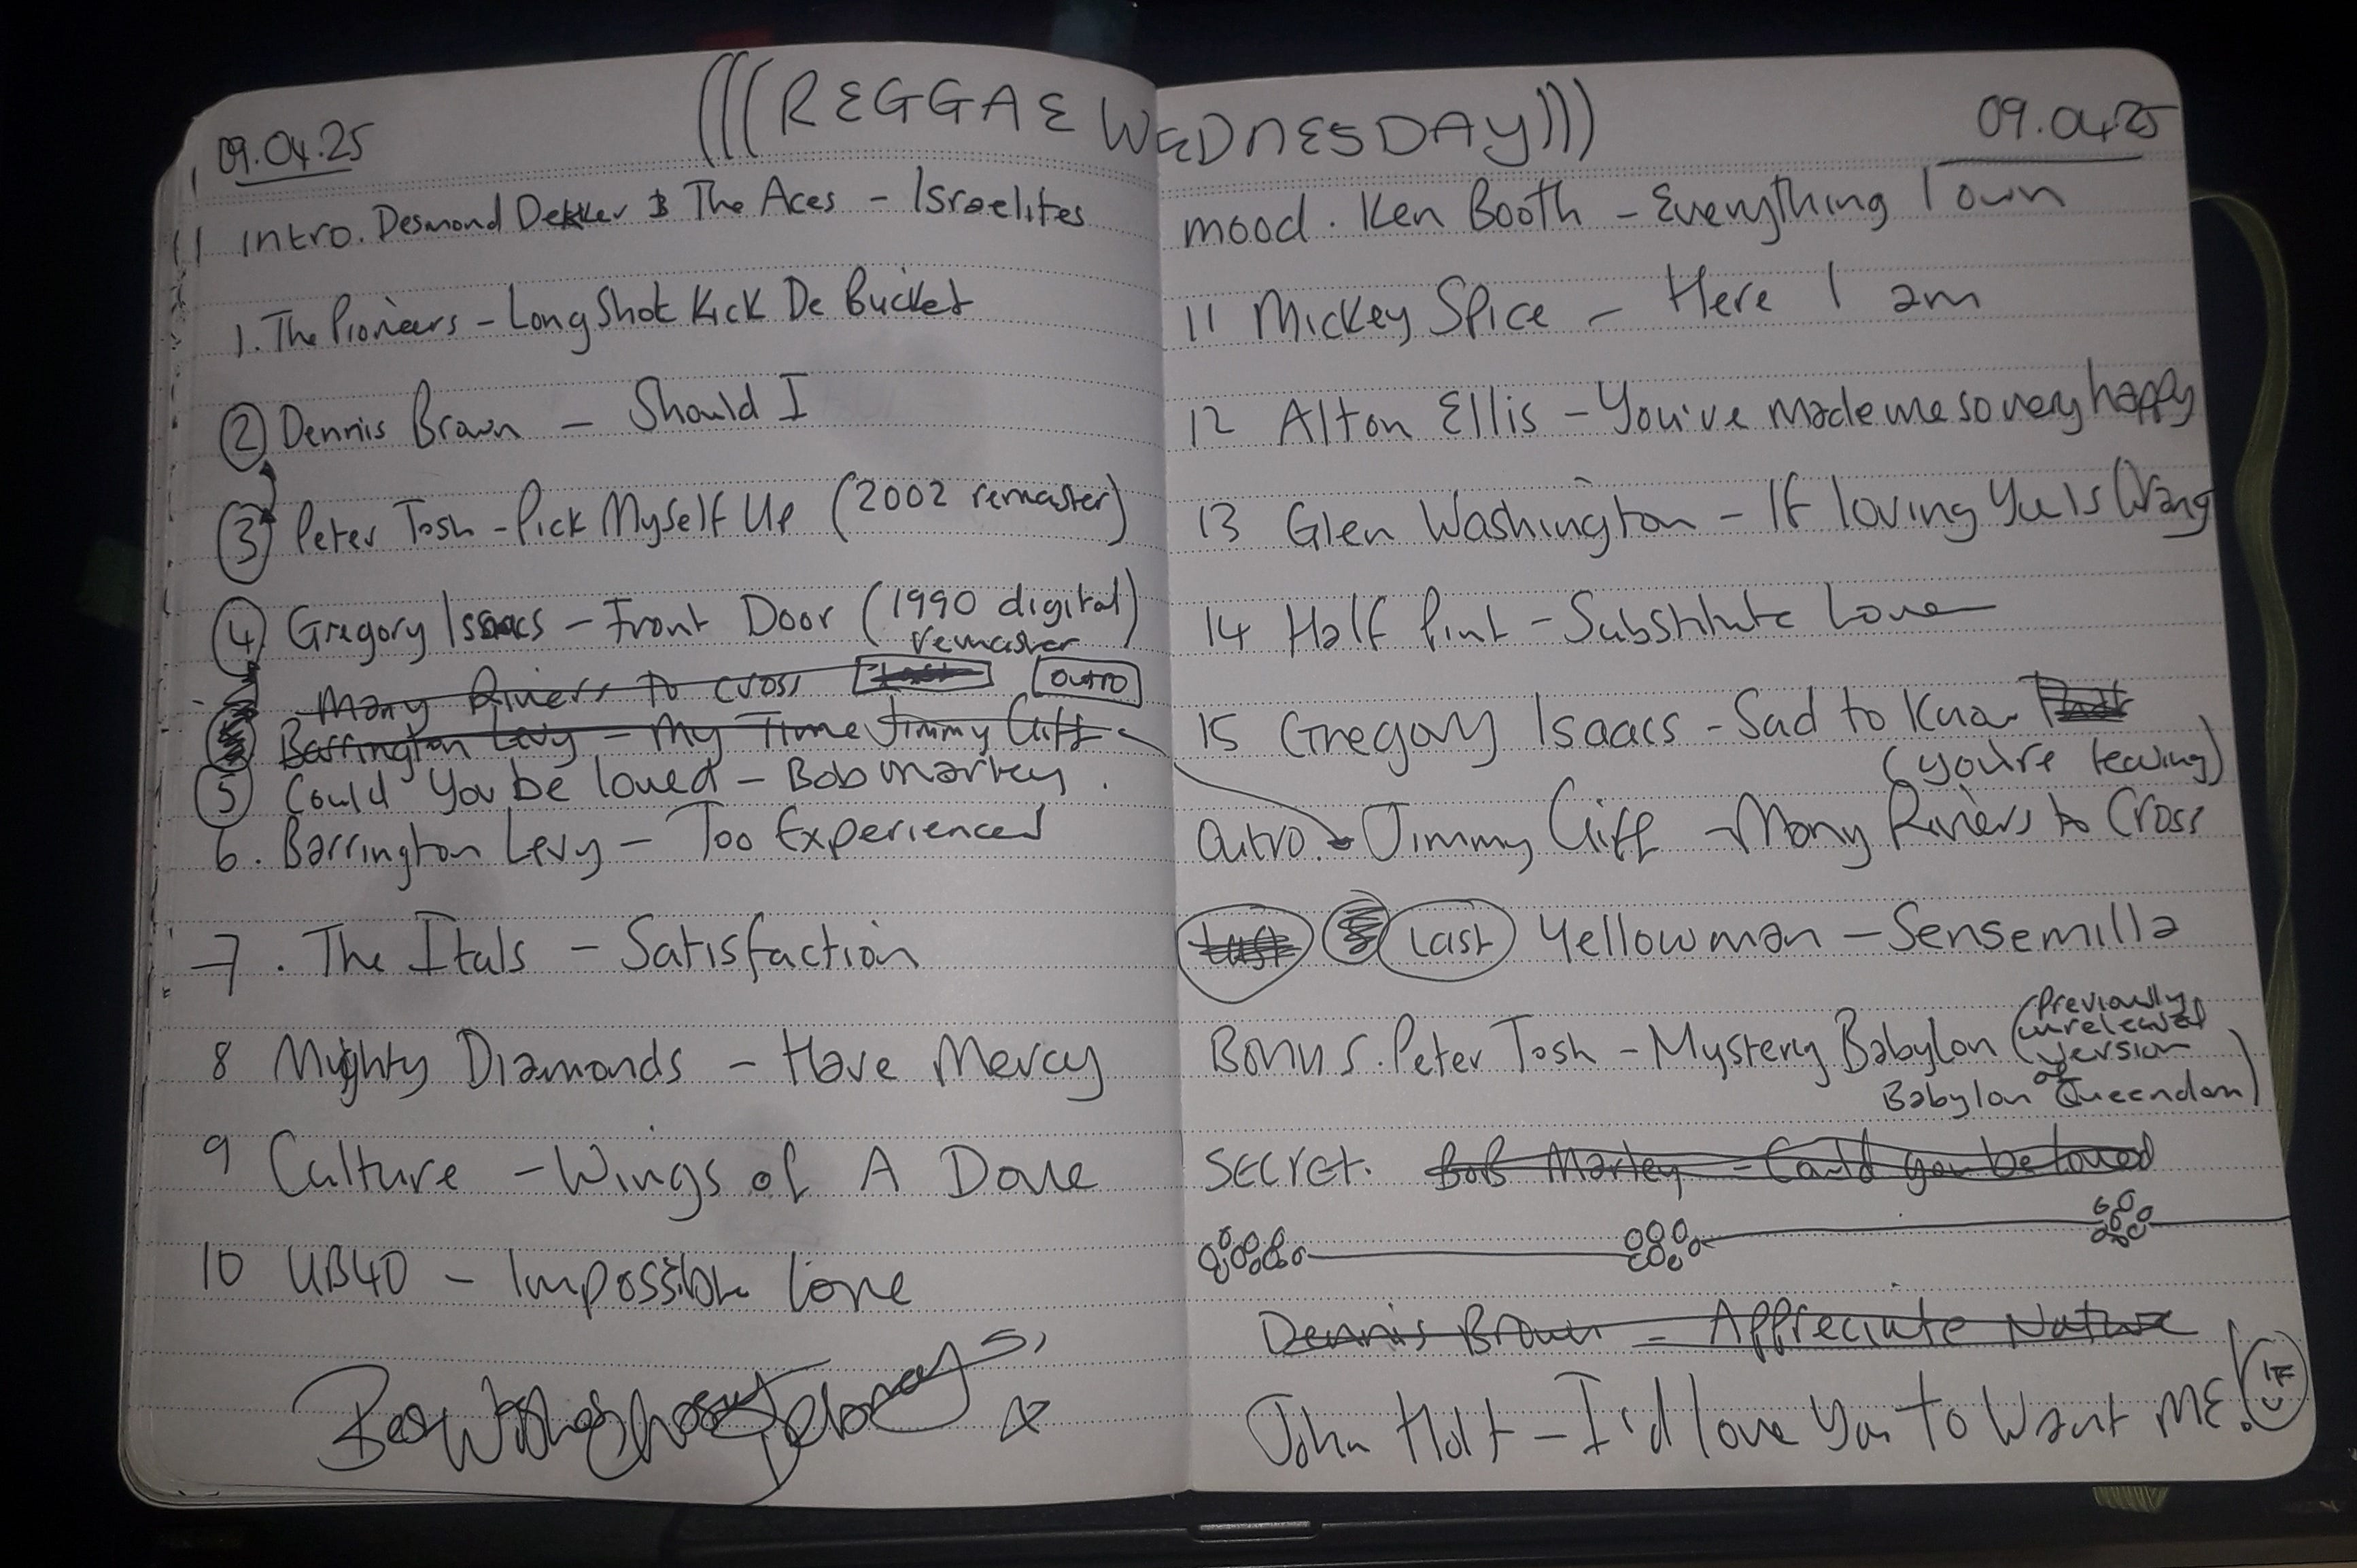 (((REGGAE WEDNESDAY)))
09.04.25
Intro. Desmond Dekker & The Aces - Israelites
1. The Pioneers - Long Shot Kick De Bucket
2 Dennis Brown - Should I
3 Peter Tosh - Pick Myself Up (2002 remaster)
4 Gregory Isaacs - Front Door (1990 digital)
remaster
Many Rivers to cross OUTRO
Barrington Levy - My Time Jimmy Cliff
5 Could you be loved - Bob Marley.
6. Barrington Levy - Too Experienced
7. The Itals - Satisfaction
8 Mighty Diamonds - Have Mercy
9 Culture - Wings of A Dove
10 UB40 - Impossible Love
Best Wishes
x
09.04.25
mood. Ken Booth - Everything I own
11 Mickey Spice - Here I am
12 Alton Ellis - You've made me so very happy
13 Glen Washington - If loving You Is Wrong
14 Half Pint - Substitute Love
15 Gregory Isaacs - Sad to Know
(you're leaving)
Outro. Jimmy Cliff - Many Rivers to Cross
Last Last Yellowman - Sensemilla
Bonus. Peter Tosh - Mystery Babylon (Previously
unreleased
version
of
Babylon Queendom)
SECRET. Bob Marley - Could you be loved
Dennis Brown - Appreciate Nature
John Holt - I'd love You To Want ME!